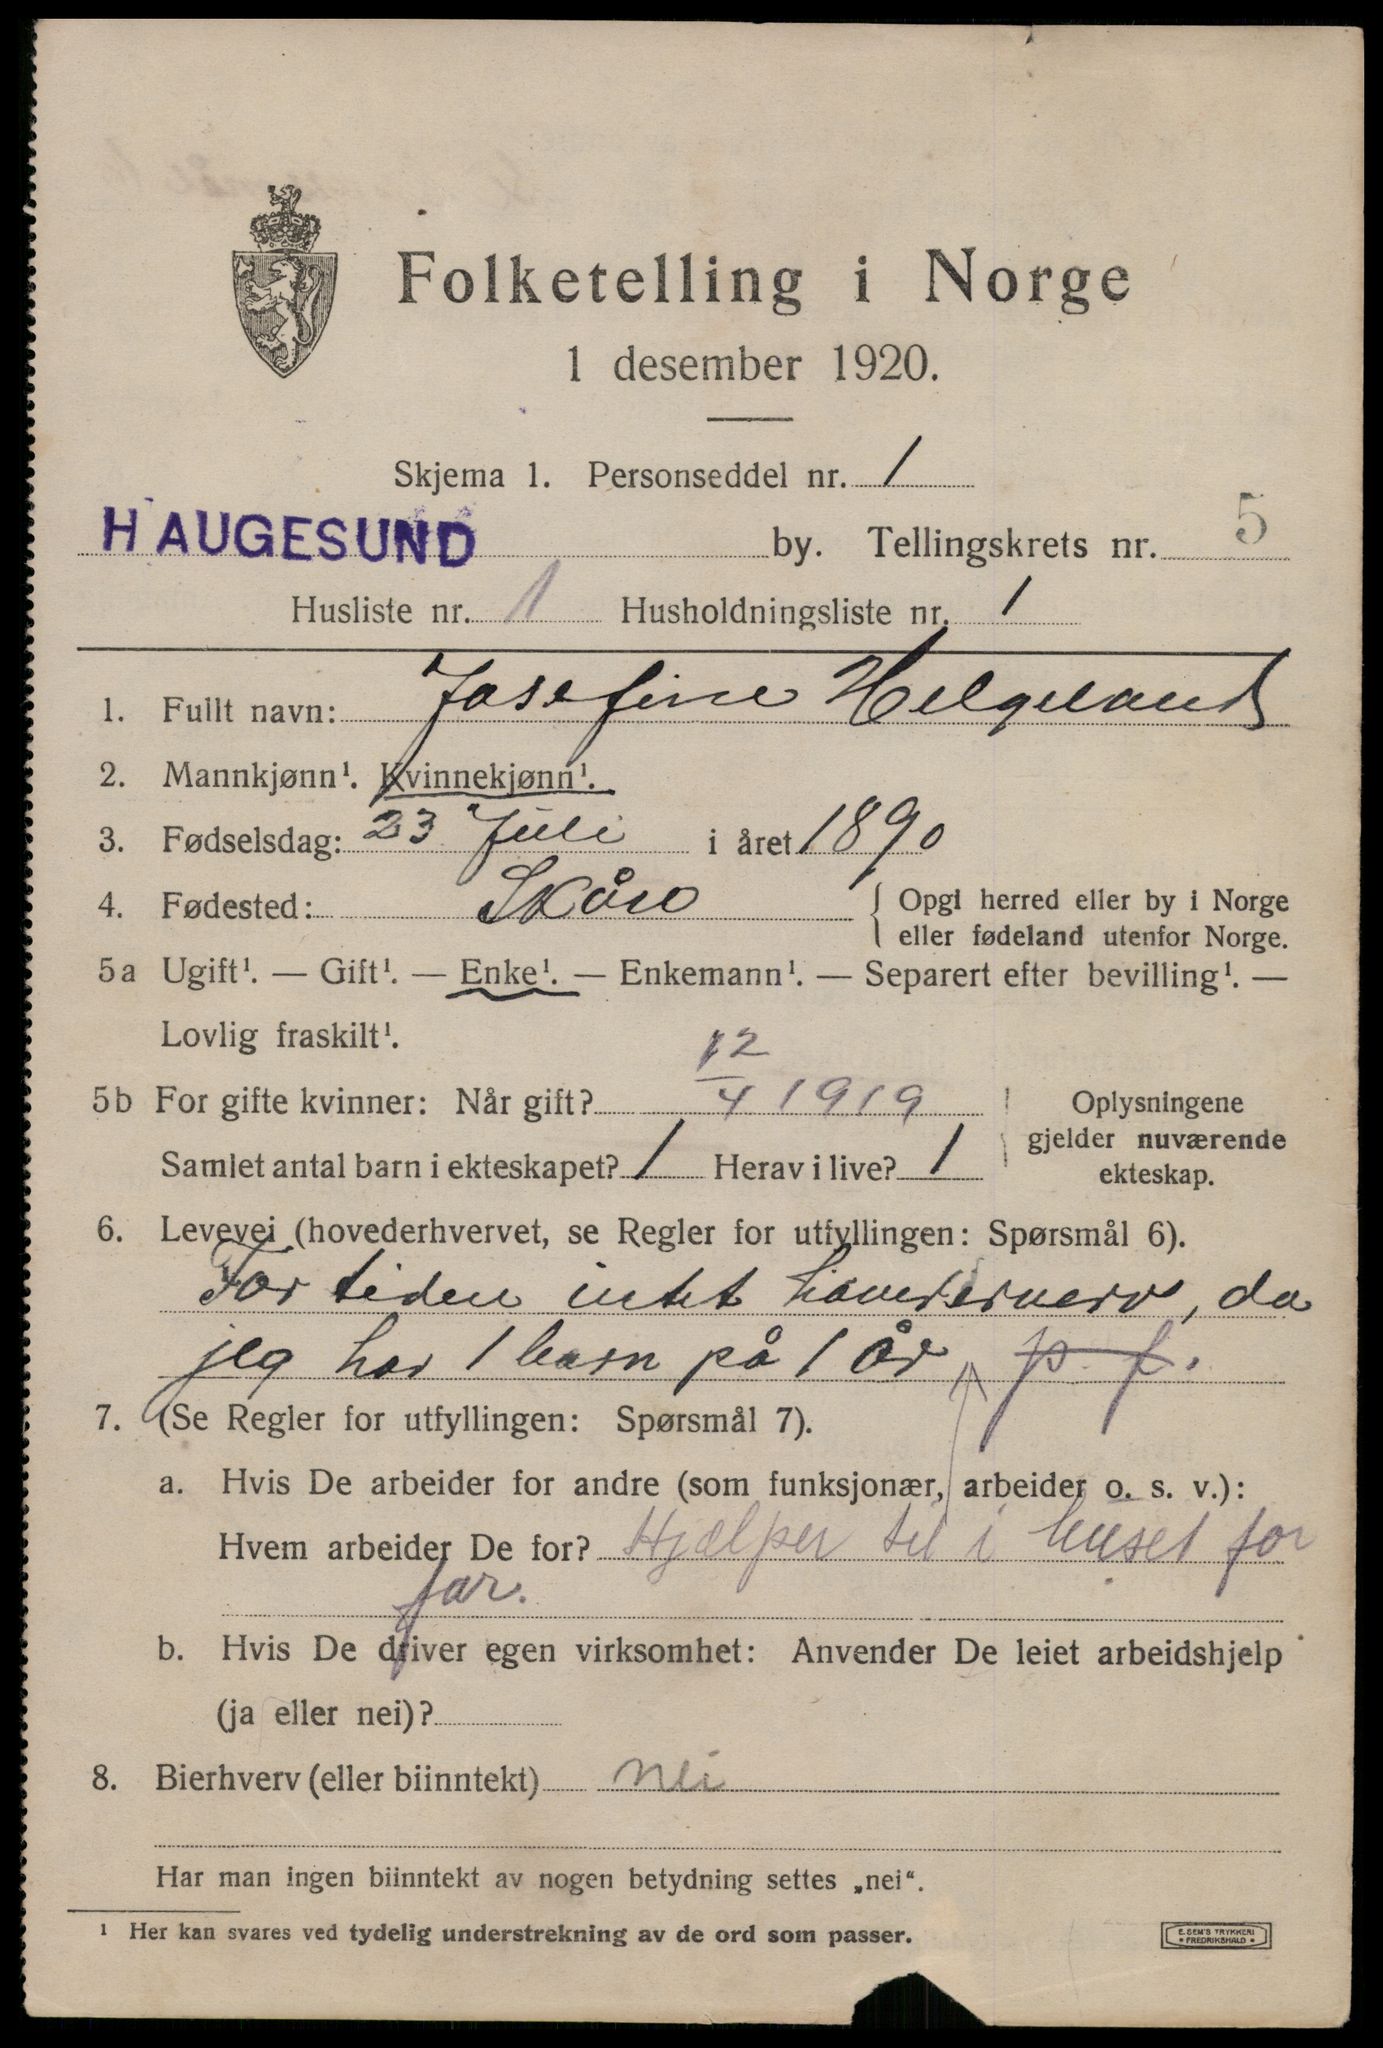 Folketelling i Norge
1 desember 1920.
Skjema 1. Personseddel nr. 1
HAUGESUND by. Tellingskrets nr. 5
Husliste nr. 1 Husholdningsliste nr. 1
1. Fullt navn: Josefine Helgeland
2. Mannkjønn¹. Kvinnekjønn¹.
3. Fødselsdag: 23 Juli i året 1890
4. Fødested: Skåre { Opgi herred eller by i Norge
eller fødeland utenfor Norge.
5a Ugift¹. — Gift¹. — Enke¹. — Enkemann¹. — Separert efter bevilling¹. —
Lovlig fraskilt¹.
5b For gifte kvinner: Når gift? 12/4 1919
Samlet antal barn i ekteskapet? 1 Herav i live? 1
Oplysningene
gjelder nuværende
ekteskap.
6. Levevei (hovederhvervet, se Regler for utfyllingen: Spørsmål 6).
For tiden intet , da
jeg har 1 barn på 1 år p. f.
7. (Se Regler for utfyllingen: Spørsmål 7).
a. Hvis De arbeider for andre (som funksjonær, arbeider o. s. v.):
Hvem arbeider De for? Hjælper til i huset for
far.
b. Hvis De driver egen virksomhet: Anvender De leiet arbeidshjelp
(ja eller nei)?
8. Bierhverv (eller biinntekt) nei
Har man ingen biinntekt av nogen betydning settes „nei“.
¹ Her kan svares ved tydelig understrekning av de ord som passer.
E. SEM'S TRYKKERI
* FREDRIKSHALD *